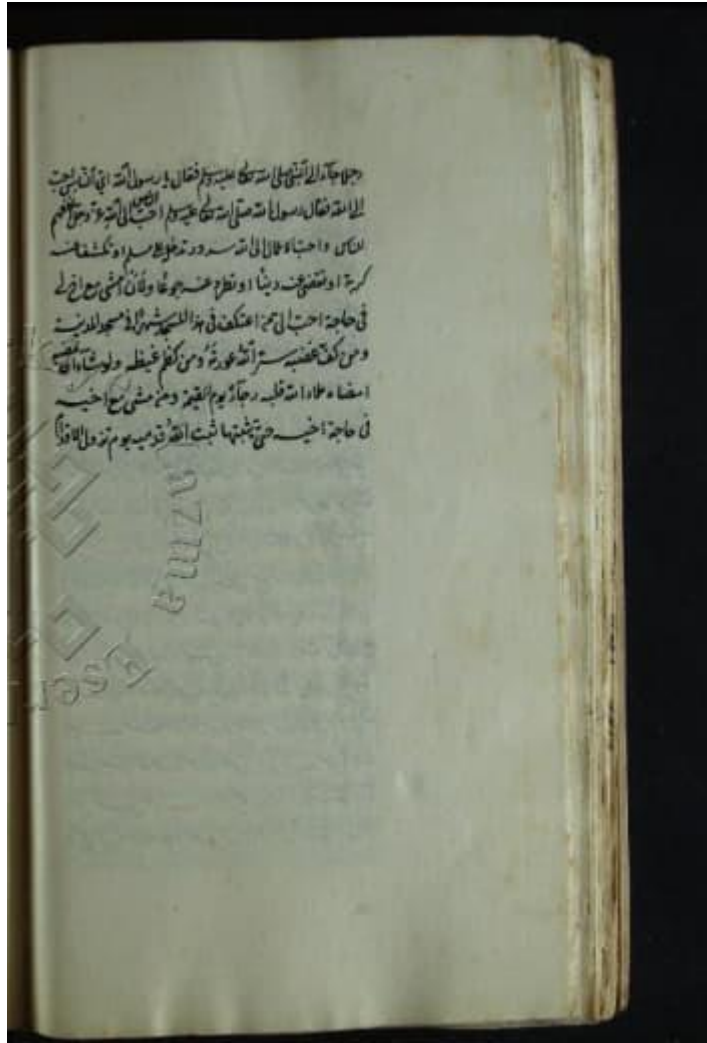 رجلا جآء الى النبى صلى الله تعالى عليه وسلم فقال يا رسول الله اىّ الناس احبّ
الى الله فقال رسول الله صلى الله تعالى عليه وسلم احبّ الناس الى الله عز وجل انفعهم
للناس واحبّ الاعمال الى الله سرور تدخل على مسلم او تكشف عنه
كربة او تقضى عنه دينًا او تطرد عنه جوعًا ولأن أمشى مع اخ لى
فى حاجة احبّ الى من اعتكف فى هذا المسجد شهرًا فى مسجد المدينة
ومن كفّ غضبه ستر اللّٰه عورته ومن كظم غيظه ولو شاء ان يمضيه
امضاه ملاء الله قلبه رجآءً يوم القيمة ومن مشى مع اخيه
فى حاجة اخيه حتى يثبتها ثبت اللّٰه قدميه يوم تزول الاقدام